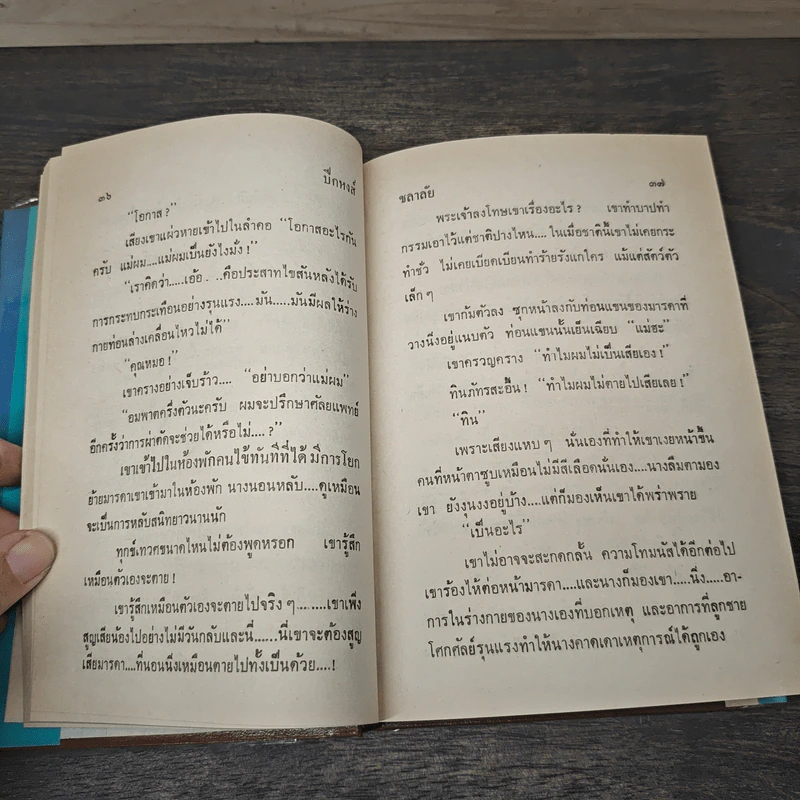 ๓๖
ปีกหงส์
“โอกาส ?”
เสียงเขาแผ่วหายเข้าไปในลำคอ “โอกาสอะไรกัน
ครับ แม่ผม....แม่ผมเป็นยังไงมั่ง !”
“เราคิดว่า.....เอ้อ . ..คือประสาทไขสันหลังได้รับ
การกระทบกระเทือนอย่างรุนแรง....มัน.....มันมีผลให้ร่าง
กายท่อนล่างเคลื่อนไหวไม่ได้”
“คุณหมอ !”
เขาครางอย่างเจ็บร้าว.... “อย่าบอกว่าแม่ผม”
“อมพาตครึ่งตัวนะครับ ผมจะปรึกษาศัลยแพทย์
อีกครั้งว่าการผ่าตัดจะช่วยได้หรือไม่....?”
เขาเข้าไปในห้องพักคนไข้ทันทีที่ได้ มีการโยก
ย้ายมารดาเขาเข้ามาในห้องพัก นางนอนหลับ....ดูเหมือน
จะเป็นการหลับสนิทยาวนานนัก
ทุกข์เทวศขนาดไหนไม่ต้องพูดหรอก เขารู้สึก
เหมือนตัวเองจะตาย !
เขารู้สึกเหมือนตัวเองจะตายไปจริง ๆ ........เขาเพิ่ง
สูญเสียน้องไปอย่างไม่มีวันกลับและนี่......นี่เขาจะต้องสูญ
เสียมารดา....ที่นอนนิ่งเหมือนตายไปทั้งเป็นด้วย....!
ชลาลัย
๓๗
พระเจ้าลงโทษเขาเรื่องอะไร ? เขาทำบาปทำ
กรรมเอาไว้แต่ชาติปางไหน.... ในเมื่อชาตินี้เขาไม่เคยกระ
ทำชั่ว ไม่เคยเบียดเบียนทำร้ายรังแกใคร แม้แต่สัตว์ตัว
เล็ก ๆ
เขาก้มตัวลง ซุกหน้าลงกับท่อนแขนของมารดาที่
วางนิ่งอยู่แนบตัว ท่อนแขนนั้นเย็นเฉียบ “แม่ฮะ”
เขาครวญคราง “ทำไมผมไม่เป็นเสียเอง !”
ทินภัทรสะอื้น ! “ทำไมผมไม่ตายไปเสียเลย !”
“ทิน”
เพราะเสียงแหบ ๆ นั่นเองที่ทำให้เขาเงยหน้าขึ้น
คนที่หน้าตาซูบเหมือนไม่มีสีเลือดนั่นเอง....นางลืมตามอง
เขา ยังงุนงงอยู่บ้าง....แต่ก็มองเห็นเขาได้พร่าพราย
“เป็นอะไร”
เขาไม่อาจจะสะกดกลั้น ความโทมนัสได้อีกต่อไป
เขาร้องไห้ต่อหน้ามารดา....และนางก็มองเขา.....นิ่ง.....อา-
การในร่างกายของนางเองที่บอกเหตุ และอาการที่ลูกชาย
โศกศัลย์รุนแรงทำให้นางคาดเดาเหตุการณ์ได้ถูกเอง